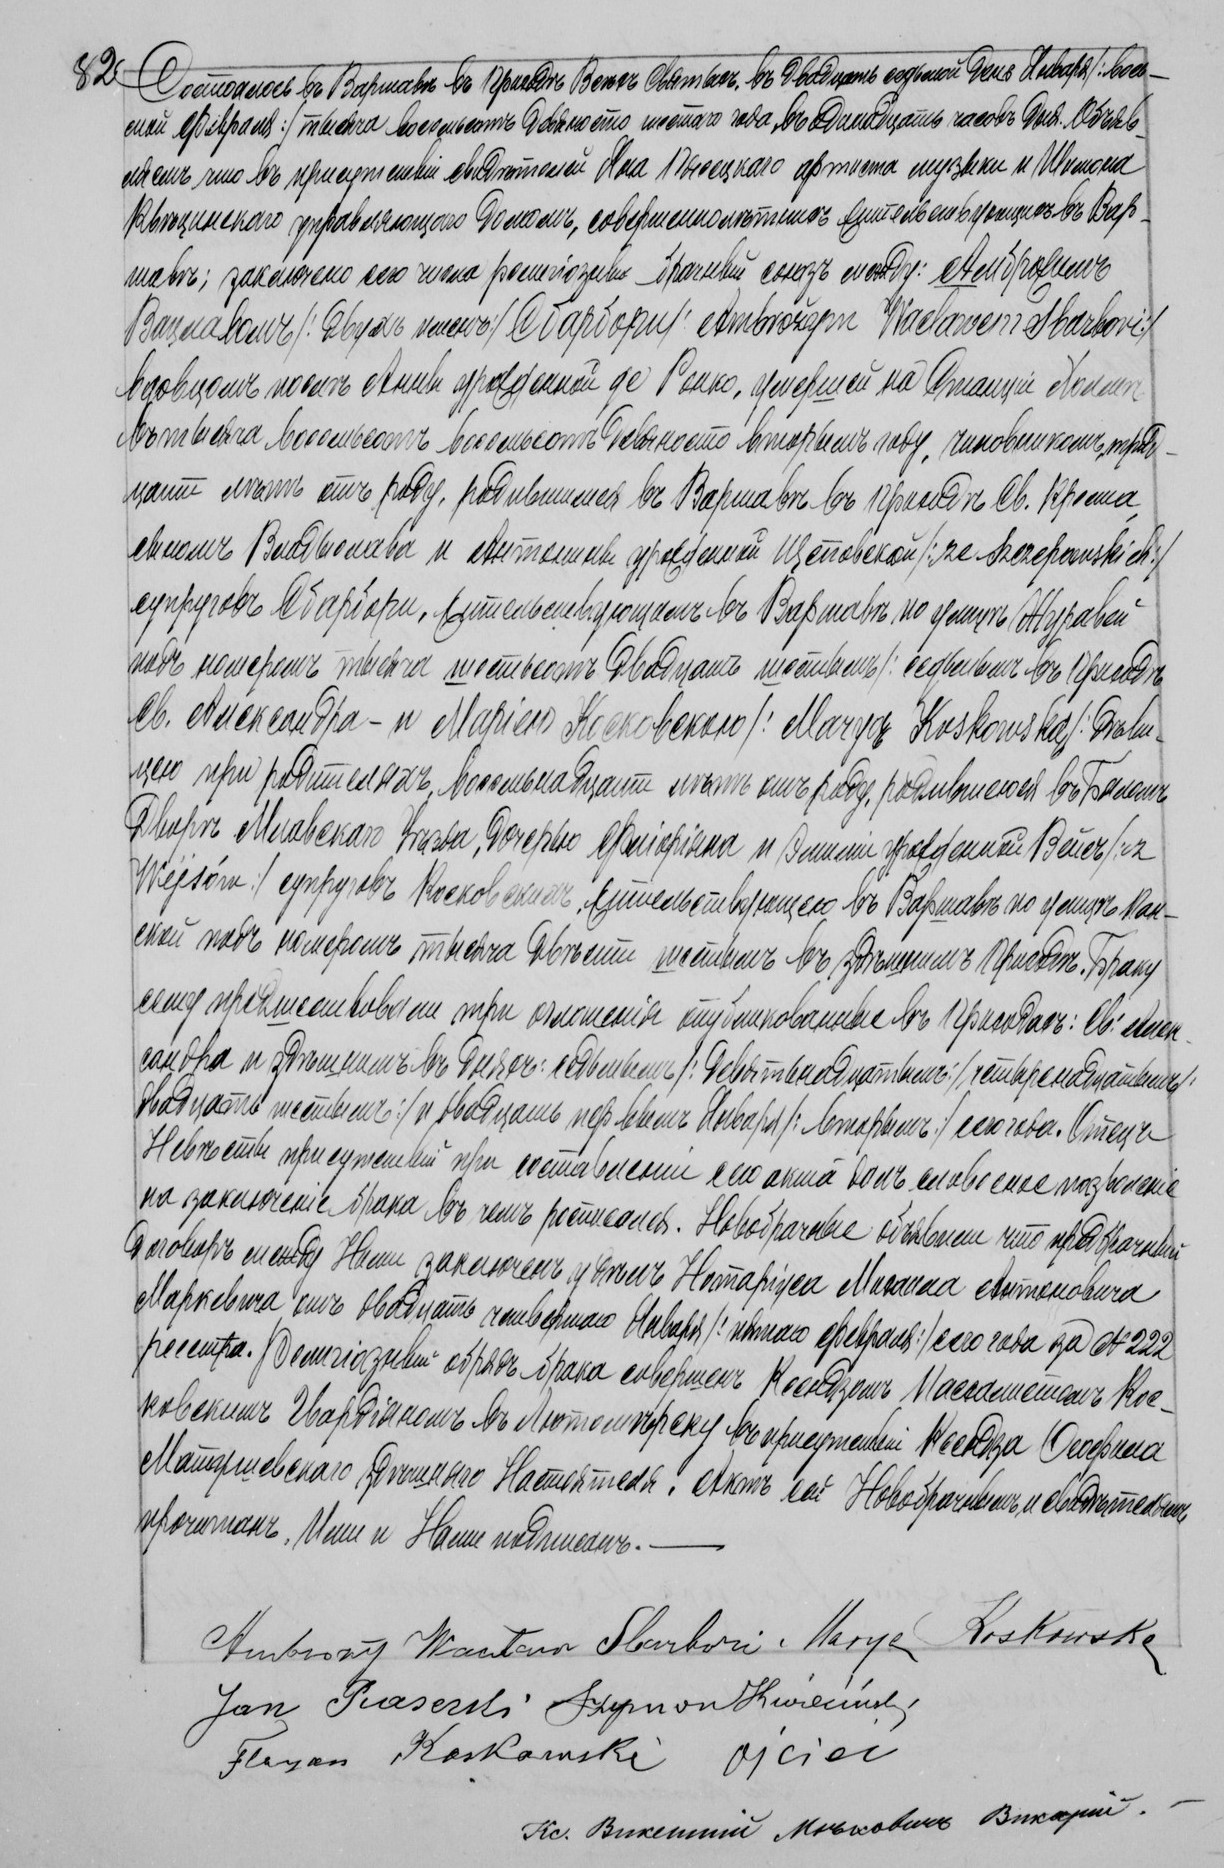 82.
Состоялось въ Варшавѣ въ Приходѣ Всехъ Святыхъ, въ двадцать седьмой день Января /: вось-
мой Февраля :/ тысяча восемьсотъ девяносто шестаго года, въ одинадцать часовъ дня. Объяв-
ляемъ что въ присутствіи свидѣтелей Яна Пясецкаго артиста музыки и Шимона
Квѣцинскаго управляющаго домомъ, совершеннолѣтнихъ жительствующихъ въ Вар-
шавѣ; заключено сего числа религіозный брачный союзъ между: Амброжимъ
Вацлавомъ /: двухъ именъ :/ Сбарбори /: Ambrożym Wacławem Sbarbori :/
вдовцомъ послѣ Анны урожденной де Ронко, умершей на Станціи
въ тысяча восемьсотъ восемьсотъ девяносто вторымъ году, чиновникомъ, трид-
цати лѣтъ отъ роду, родившимся въ Варшавѣ въ Приходѣ Св. Креста,
сыномъ Владыслава и Антонины урожденной Щеповской /: ze Szczepowskich :/
супруговъ Сбарбори, жительствующимъ въ Варшавѣ по улицѣ Журавей
подъ номеромъ тысяча шестьсотъ двадцать шестымъ /: седьмымъ въ Приходѣ
Св. Александра – и Маріею Косковскою /: Maryą Koskowską /: дѣви-
цею при родителяхъ, восемьнадцати лѣтъ отъ роду, родившеюся въ Бѣломъ
Дворѣ Млавскаго Уѣзда, дочерью Флоріяна и Эмиліи урожденной Вейсъ /: z
Wejsów :/ супруговъ Косковскихъ, жительствующею въ Варшавѣ по улицѣ Пан-
ской подъ номеромъ тысяча двѣсти шестымъ въ здѣшнемъ Приходѣ. Браку
сему предшествовали три оглашенія опубликованные въ Приходахъ: Св: Алек-
сандра и здѣшнемъ въ дняхъ: седьмымъ /: девятьнадцатымъ :/ четырнадцатымъ /:
двадцать шестымъ :/ и двадцать первымъ Января /: вторымъ :/ сего года. Отецъ
Невѣсты присутствій при составленіи сего акта далъ словесное позволеніе
на заключеніе брака въ чемъ росписался. Новобрачные объявили что предбрачный
договоръ между Ними заключенъ у Нотаріуса Михаила Антоновича
Маркевича отъ двадцать четвертаго Января /: пятаго Февраля :/ сего года за № 222
реестра. Религіозный обрядъ брака совершенъ Ксендзомъ Кос-
ковскимъ Гвардіяномъ въ Лютомѣрску въ присутствіи Ксендза Осефила
Матушевскаго здѣшняго Настоятеля. Актъ сей Новобрачнымъ и свидѣтелямъ
прочитанъ, Ими и Нами подписанъ. —
Ambroży Wacław Sbarbori. Marya Koskowska
Jan Piasecki Szymon Kwieciński
Floryan Koskowski ojciec
Кс. Викентій Викарій. –